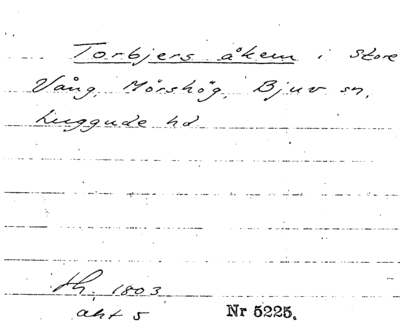 Torbjers åkern i Store
Vång, Mörshög, Bjuv sn,
Luggude hd
h. 1803
akt 5 Nr 5225.